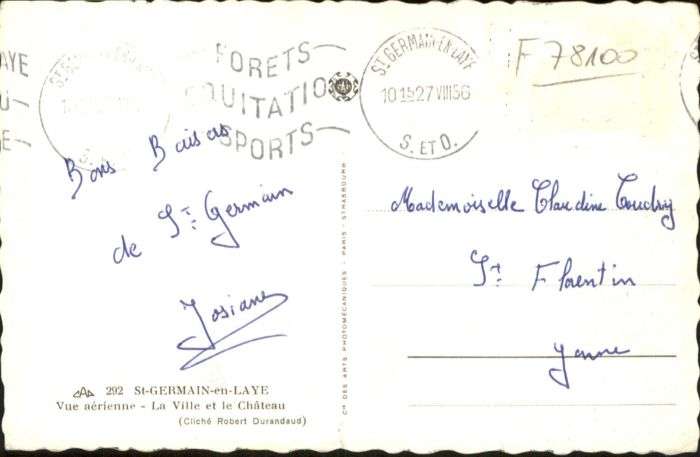 FORETS
EQUITATIO
SPORTS
St GERMAIN-EN-LAYE
10 15 27 VIII 56
S. ET O.
F 78100
Bons Baisers
de St Germain
Josiane
292 St-GERMAIN-en-LAYE
Vue aérienne - La Ville et le Château
(Cliché Robert Durandaud)
Cie DES ARTS PHOTOMÉCANIQUES - PARIS - STRASBOURG
Mademoiselle Claudine
St Florentin
Yonne